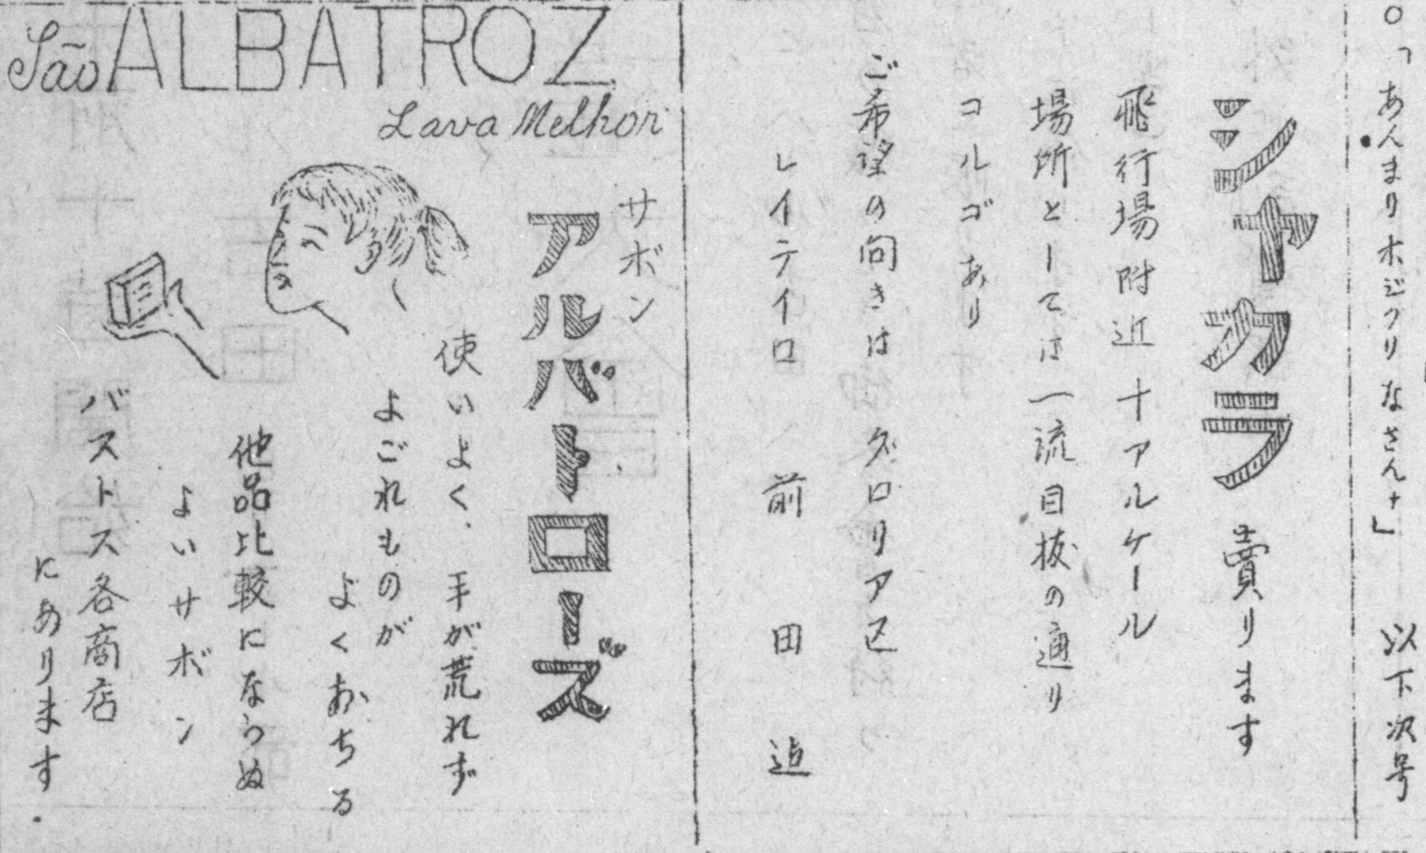 〇「あんまりホジクリなさんナ」 以下次号
シャカラ 賣ります
飛行場附近 十アルケール
場所としては一流目抜の通り
コルゴあり
ご希望の向きは グロリア区
レイテイロ 前田
São ALBATROZ
Lava Melhor
サボン
アルバトローズ
使いよく、手が荒れず
よごれものが
よくおちる
他品比較にならぬ
よいサボン
バストス各商店
にあります.